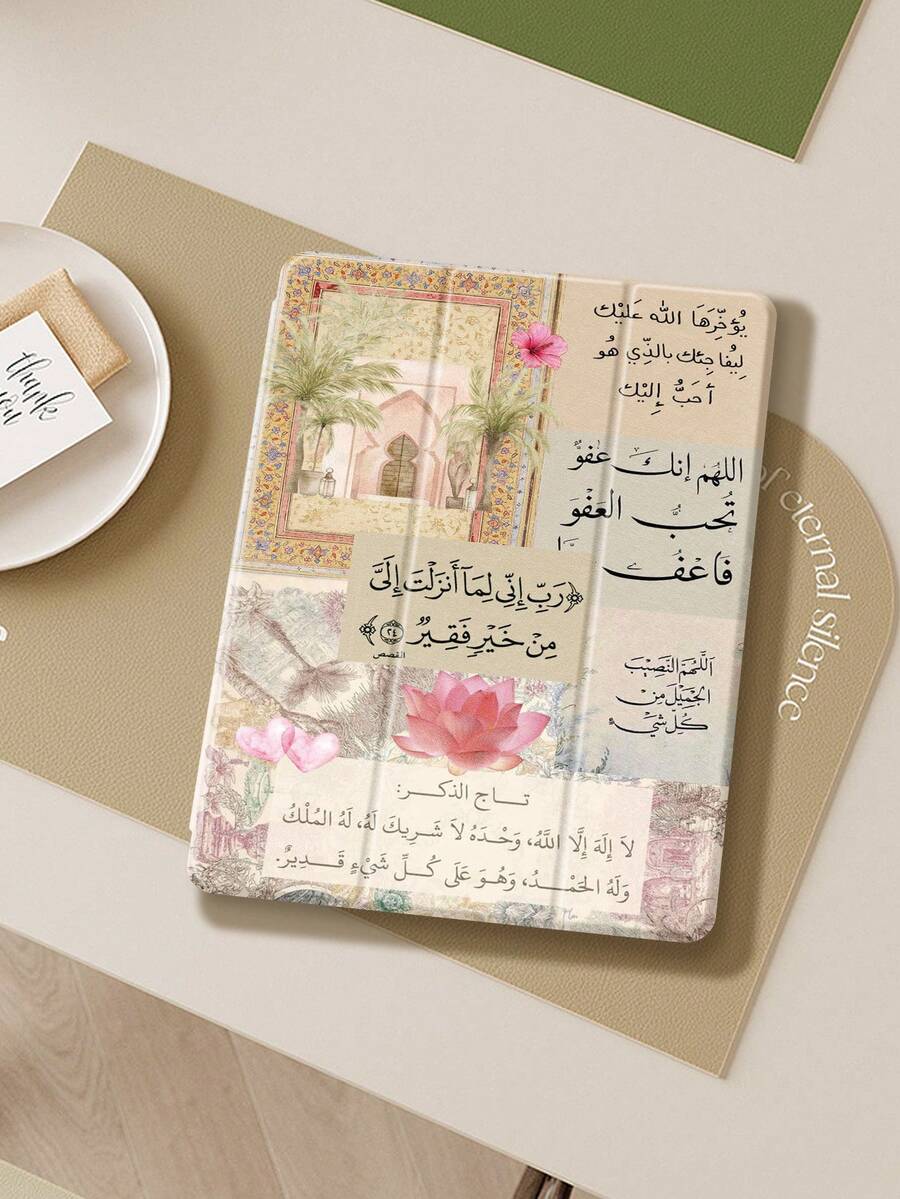 يُؤَخِّرُهَا اللّٰه عَلَيْك
لِيُفَاجِئَك بالذِّي هُو
أحَبُّ إِلَيْك
اللهُم إنك عَفوٌ
تُحبُّ العَفْوَ
فَاعْفُ
رَبِّ إِنِّي لِمَا أَنزَلْتَ إِلَيَّ
مِنْ خَيْرٍ فَقِيرٌ ٢٤
القصص
اللَّهُمَّ النَّصِيْبَ
الجَمِيْلَ مِن
كُلِّ شَيْءٍ
تاج الذكر:
لاَ إِلَهَ إِلَّا اللَّهُ، وَحْدَهُ لاَ شَرِيكَ لَهُ، لَهُ المُلْكُ
وَلَهُ الحَمْدُ، وَهُوَ عَلَى كُلِّ شَيْءٍ قَدِيرٌ.
thank
you
of eternal silence